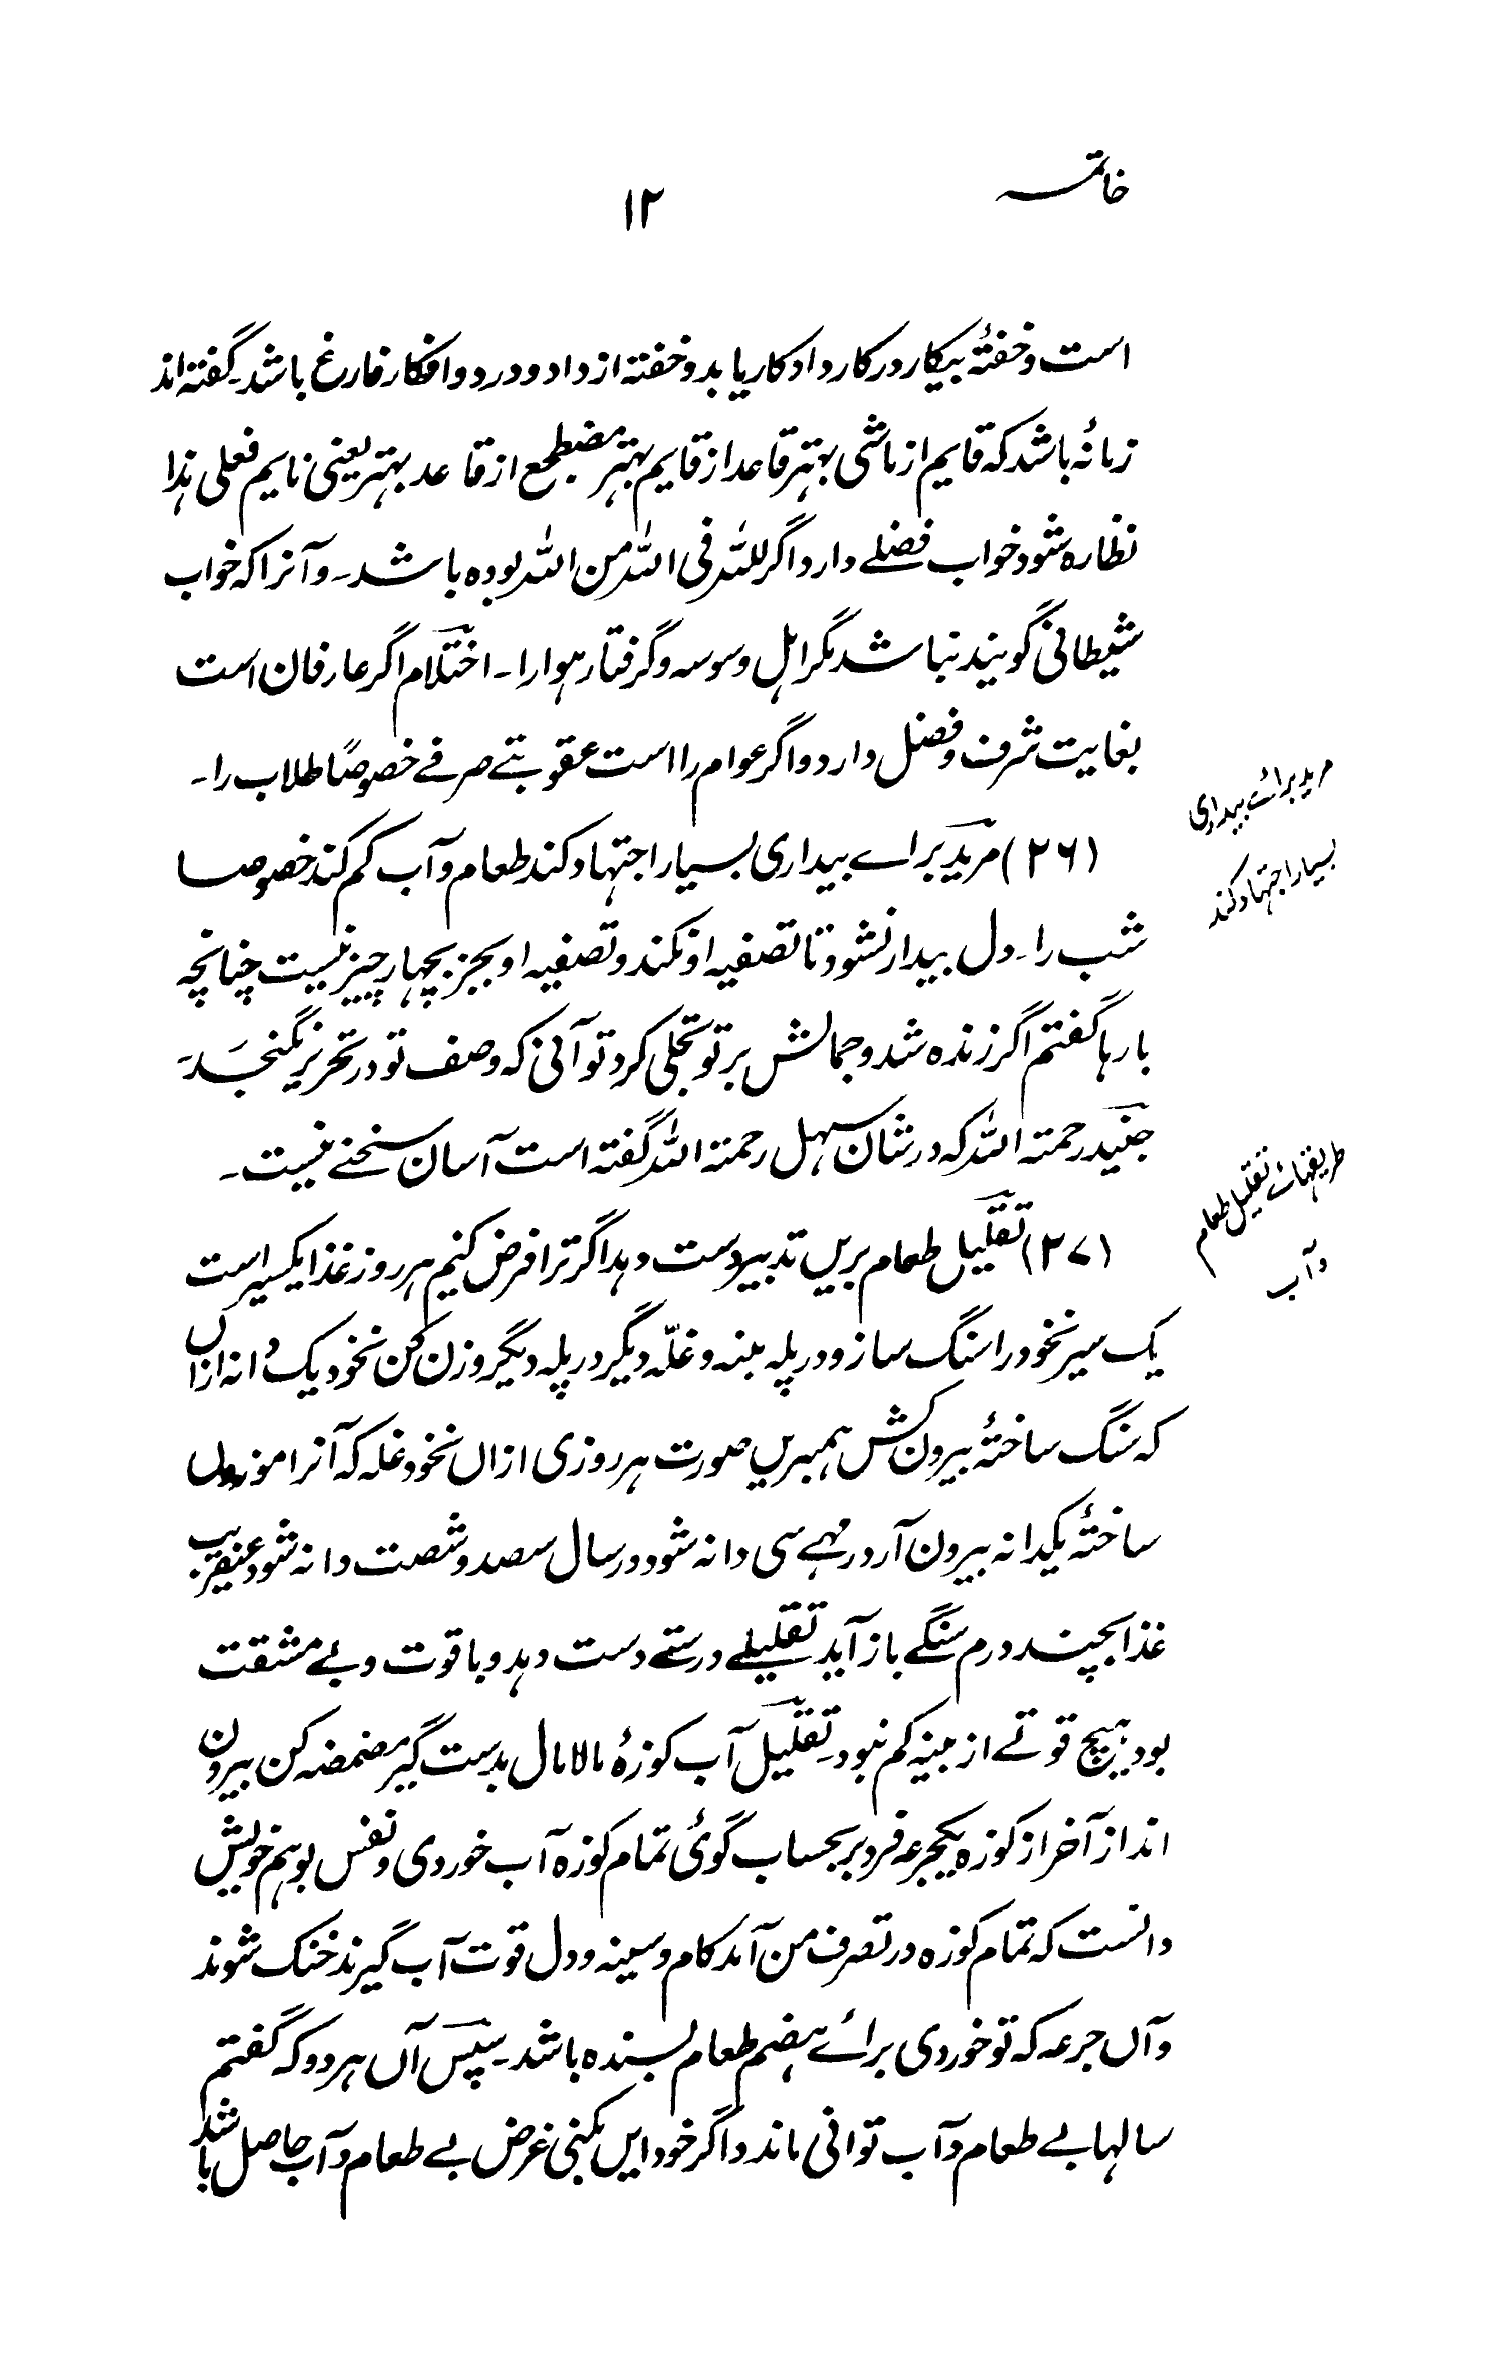 خاتمہ
۱۲
است و خفتۂ بیکار در کار داد کار یابد و خفتہ از داد و درد و افکار فارغ باشد۔ گفتہ اند
زمانۂ باشد کہ قایم از ماشی بہتر قاعد از قایم بہتر مضطجع از قاعد بہتر یعنی نایم فعلی ہذا
نظارہ شود خواب فضلے دارد اگر للہ فی اللہ من اللہ بودہ باشد۔ و آنرا کہ خواب
شیطانی گویند نباشد مگر اہل وسوسہ و گرفتار ہوا را۔ احتلام اگر عارفان است
بغایت شرف و فضل دارد و اگر عوام را است عقوبتے صرفے خصوصًا طلاب را۔
مرید برائے بیداری
بسیار اجتہاد کند
(۲۶) مرید براے بیداری بسیار اجتہاد کند طعام و آب کم کند خصوصا
شب را۔ دل بیدار نشود تا تصفیہ او نکند و تصفیہ او بجز بچہار چیز نیست چنانچہ
بارہا گفتم اگر زندہ شد و جمالش بر تو تجلی کرد تو آنی کہ وصف تو در تحریر نگنجد
جنید رحمتہ اللہ کہ در شان سہل رحمتہ اللہ گفتہ است آسان سخنے نیست۔
طریقہائے تقلیل طعام
و آب
(۲۷) تقلیل طعام بریں تدبیر دست دہد اگر ترا فرض کنیم ہر روز غذا یکسیر است
یک سیر نخود را سنگ ساز و در پلہ بنہ و غلّہ دیگر در پلہ دیگر وزن کن نخود یک دانہ ازاں
کہ سنگ ساختۂ بیرون کش ہمبریں صورت ہر روزی ازاں نخود غلہ کہ آنرا موزوں
ساختۂ یکدانہ بیرون آر در مہے سی دانہ شود در سال سصد و شصت دانہ شود عنقریب
غذا بچند درم سنگے باز آید تقلیلے درستے دست دہد و با قوت و بے مشقت
بود ہیچ قوتے از بنیہ کم نبود۔ تقلیل آب کوزۂ مالامال بدست گیر مضمضہ کن بیرون
انداز آخر از کوزہ یکجرعہ فرد بر بحساب گوئی تمام کوزہ آب خوردی و نفس بوہم خویش
دانست کہ تمام کوزہ در تصرف من آمد کام و سینہ و دل قوت آب گیرند خنک شوند
و آں جرعہ کہ تو خوردی برائے ہضم طعام بسندہ باشد۔ سپس آں ہر دو کہ گفتم
سالہا بے طعام و آب توانی ماند و اگر خود ایں بکنی غرض بے طعام و آب حاصل باشد